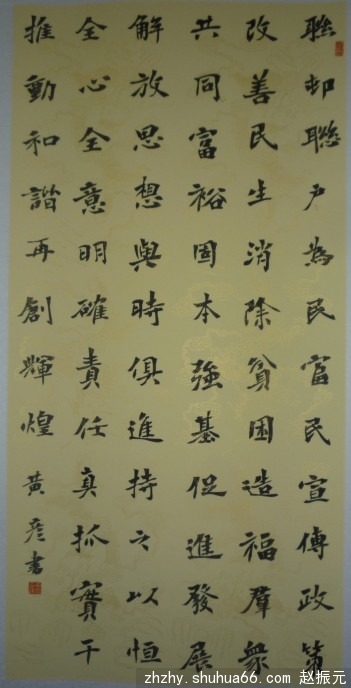 聯邨聯户為民富民宣傳政策
改善民生消除貧困造福羣衆
共同富裕固本強基促進發展
解放思想與時俱進持之以恒
全心全意明確責任真抓實干
推動和諧再創輝煌黄彦書
zhzhy.shuhua66.com 赵振元